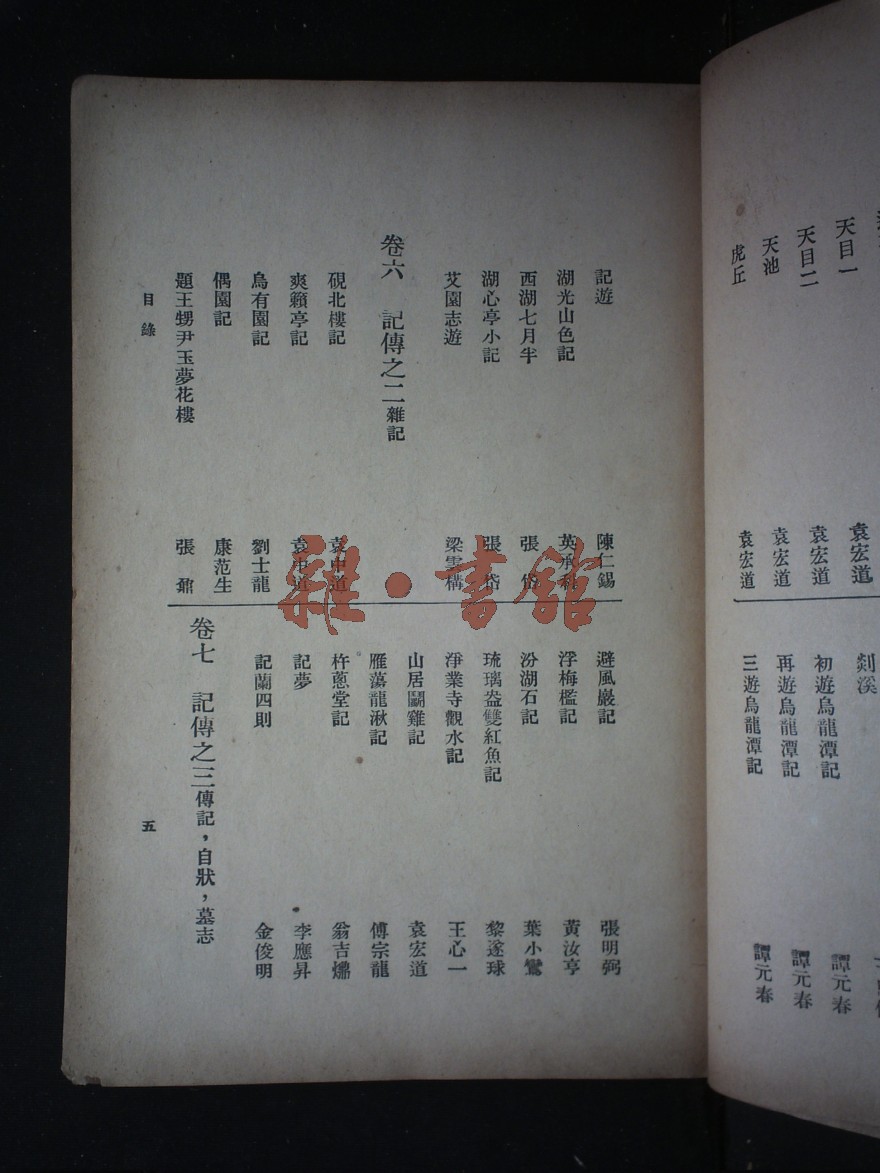 天目一 袁宏道
天目二 袁宏道
天池 袁宏道
虎丘 袁宏道
剡溪
初遊烏龍潭記 譚元春
再遊烏龍潭記 譚元春
三遊烏龍潭記 譚元春
記遊 陳仁錫
湖光山色記 英承科
西湖七月半 張岱
湖心亭小記 張岱
艾園志遊 梁雲構
卷六 記傳之二雜記
硯北樓記 袁中道
爽籟亭記 袁中道
烏有園記 劉士龍
偶園記 康范生
題王甥尹玉夢花樓 張鼐
避風巖記 張明弼
浮梅檻記 黃汝亨
汾湖石記 葉小鸞
琉璃盎雙紅魚記 黎遂球
淨業寺觀水記 王心一
山居鬬雞記 袁宏道
雁蕩龍湫記 傅宗龍
杵蔥堂記 翁吉㷸
記夢 李應昇
記蘭四則 金俊明
卷七 記傳之三傳記，自狀，墓志
目錄 五
雜·書館